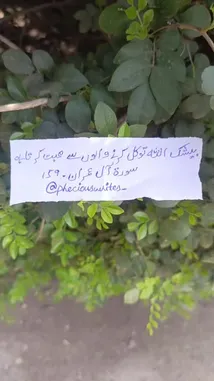 بیشک اللہ توکل کرنے والوں سے محبت کرتا ہے
سورۃ آل عمران ۱۵۹
@pheciouswrites_